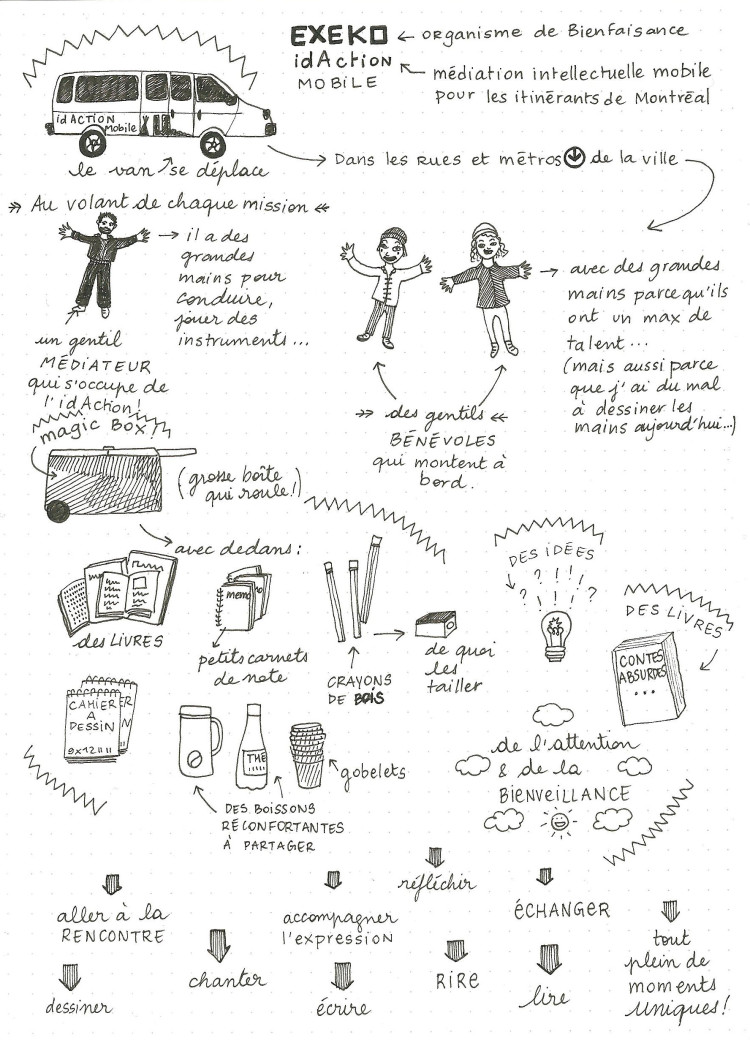 EXEKO ← organisme de Bienfaisance
idAction
MOBILE
médiation intellectuelle mobile
pour les itinérants de Montréal
idACTION
Mobile
le van se déplace
Dans les rues et métros de la ville
Au volant de chaque mission
il a des
grandes
mains pour
conduire,
jouer des
instruments...
un gentil
MÉDIATEUR
qui s'occupe de
l'idAction!
avec des grandes
mains parce qu'ils
ont un max de
talent...
(mais aussi parce
que j'ai du mal
à dessiner les
mains aujourd'hui...)
des gentils
BÉNÉVOLES
qui montent à
bord.
magic BOX!
(grosse boîte
qui roule!)
avec dedans:
des LIVRES
memo
petits carnets
de note
CRAYONS
DE BOIS
de quoi
les
tailler
DES IDÉES
? ! ! !
? ?
DES LIVRES
CONTES
ABSURDES
...
CAHIER
A
DESSIN
9x12
ER
N
THÉ
gobelets
DES BOISSONS
RÉCONFORTANTES
À PARTAGER
de l'attention
& de la
BIENVEILLANCE
aller à la
RENCONTRE
dessiner
chanter
accompagner
l'expression
écrire
réfléchir
RIRE
ÉCHANGER
lire
tout
plein de
moments
uniques!